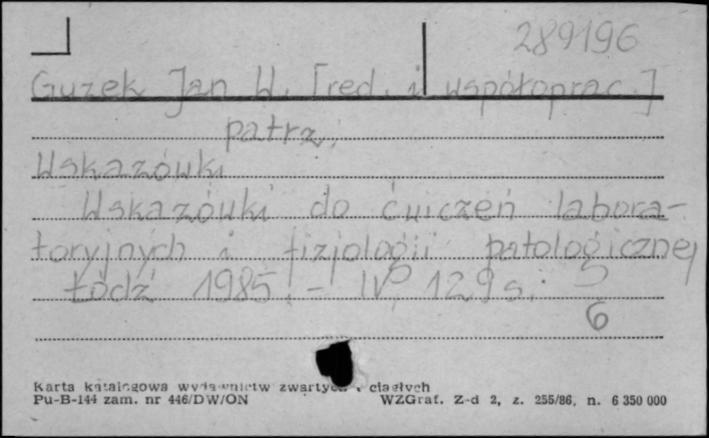 289196
Guzek Jan W. [red. i współoprac.]
patrz:
Wskazówki
Wskazówki do ćwiczeń labora-
toryjnych i fizjologii patologicznej
Łódź 1985. - IV, 129 s.
6
Karta katalogowa wydawnictw zwartych i ciągłych
Pu-B-144 zam. nr 446/DW/ON WZGraf. Z-d 2, z. 255/86, n. 6 350 000